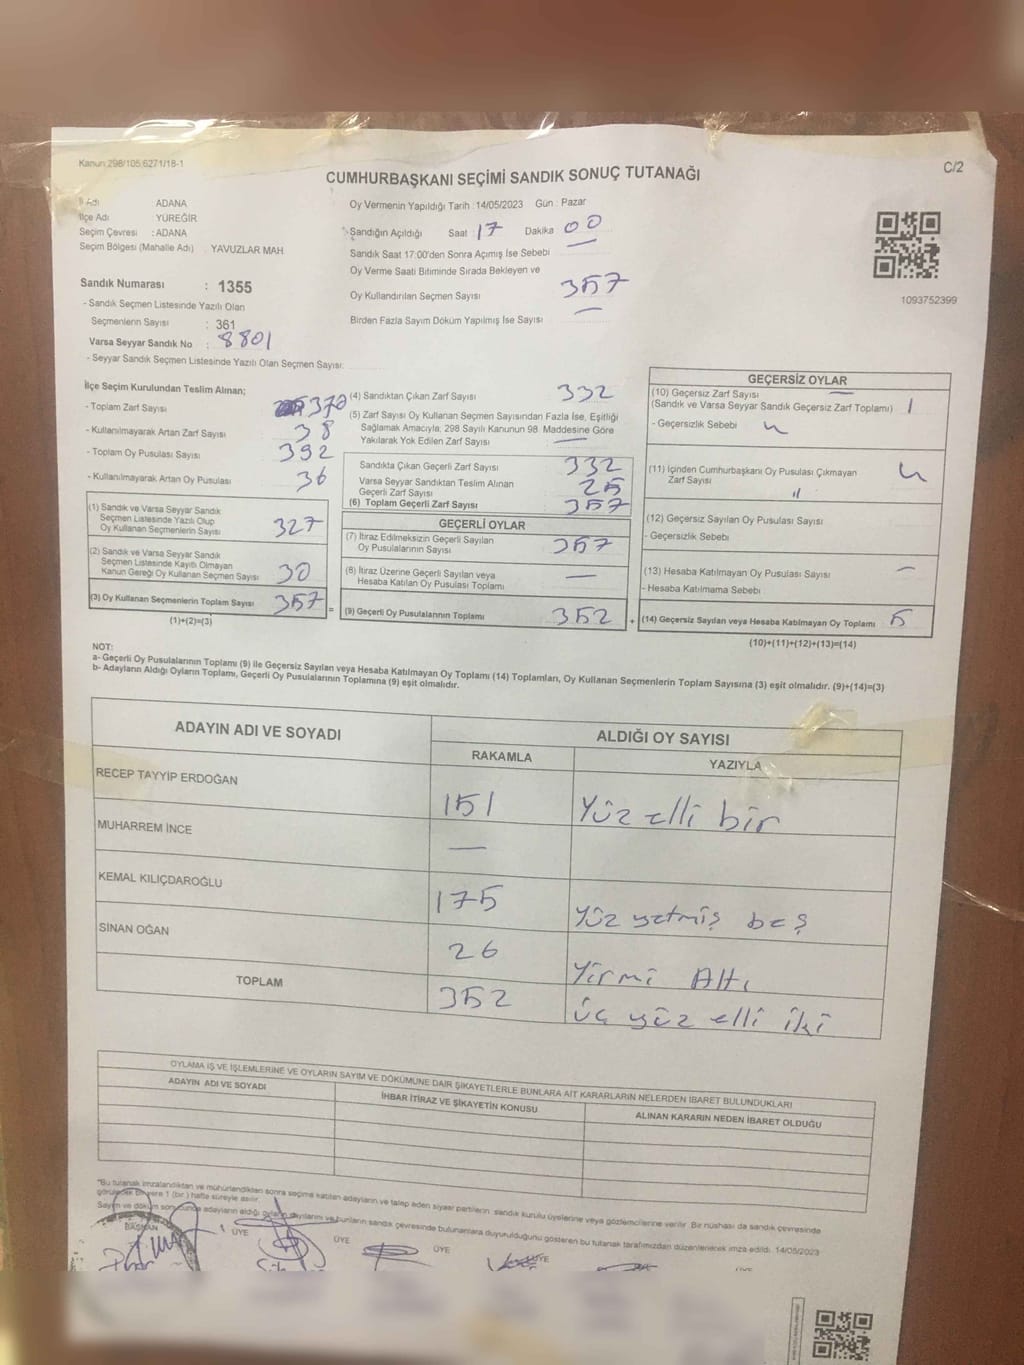 Kanun 298/105,6271/18-1
C/2
CUMHURBAŞKANI SEÇİMİ SANDIK SONUÇ TUTANAĞI
İl Adı ADANA
İlçe Adı YÜREĞİR
Seçim Çevresi : ADANA
Seçim Bölgesi (Mahalle Adı) : YAVUZLAR MAH
Sandık Numarası : 1355
- Sandık Seçmen Listesinde Yazılı Olan
Seçmenlerin Sayısı : 361
Varsa Seyyar Sandık No : 8801
- Seyyar Sandık Seçmen Listesinde Yazılı Olan Seçmen Sayısı:
Oy Vermenin Yapıldığı Tarih : 14/05/2023 Gün : Pazar
Sandığın Açıldığı Saat : 17 Dakika : 00
Sandık Saat 17:00'den Sonra Açımış İse Sebebi —
Oy Verme Saati Bitiminde Sırada Bekleyen ve
Oy Kullandırılan Seçmen Sayısı 357
Birden Fazla Sayım Döküm Yapılmış İse Sayısı —
1093752399
İlçe Seçim Kurulundan Teslim Alınan;
- Toplam Zarf Sayısı 370
- Kullanılmayarak Artan Zarf Sayısı 38
- Toplam Oy Pusulası Sayısı 392
- Kullanılmayarak Artan Oy Pusulası 36
(1) Sandık ve Varsa Seyyar Sandık
Seçmen Listesinde Yazılı Olup
Oy Kullanan Seçmenlerin Sayısı 327
(2) Sandık ve Varsa Seyyar Sandık
Seçmen Listesinde Kayıtlı Olmayan
Kanun Gereği Oy Kullanan Seçmen Sayısı 30
(3) Oy Kullanan Seçmenlerin Toplam Sayısı 357
(1)+(2)=(3)
=
(4) Sandıktan Çıkan Zarf Sayısı 332
(5) Zarf Sayısı Oy Kullanan Seçmen Sayısından Fazla İse, Eşitliği
Sağlamak Amacıyla; 298 Sayılı Kanunun 98. Maddesine Göre
Yakılarak Yok Edilen Zarf Sayısı —
Sandıkta Çıkan Geçerli Zarf Sayısı 332
Varsa Seyyar Sandıktan Teslim Alınan
Geçerli Zarf Sayısı 25
(6) Toplam Geçerli Zarf Sayısı 357
GEÇERLİ OYLAR
(7) İtiraz Edilmeksizin Geçerli Sayılan
Oy Pusulalarının Sayısı 357
(8) İtiraz Üzerine Geçerli Sayılan veya
Hesaba Katılan Oy Pusulası Toplamı —
(9) Geçerli Oy Pusulalarının Toplamı 352
+
GEÇERSİZ OYLAR
(10) Geçersiz Zarf Sayısı —
(Sandık ve Varsa Seyyar Sandık Geçersiz Zarf Toplamı) 1
- Geçersizlik Sebebi
(11) İçinden Cumhurbaşkanı Oy Pusulası Çıkmayan
Zarf Sayısı
(12) Geçersiz Sayılan Oy Pusulası Sayısı
- Geçersizlik Sebebi
(13) Hesaba Katılmayan Oy Pusulası Sayısı —
- Hesaba Katılmama Sebebi
(14) Geçersiz Sayılan veya Hesaba Katılmayan Oy Toplamı 5
(10)+(11)+(12)+(13)=(14)
NOT:
a- Geçerli Oy Pusulalarının Toplamı (9) ile Geçersiz Sayılan veya Hesaba Katılmayan Oy Toplamı (14) Toplamları, Oy Kullanan Seçmenlerin Toplam Sayısına (3) eşit olmalıdır. (9)+(14)=(3)
b- Adayların Aldığı Oyların Toplamı, Geçerli Oy Pusulalarının Toplamına (9) eşit olmalıdır.
ADAYIN ADI VE SOYADI ALDIĞI OY SAYISI
RAKAMLA YAZIYLA
RECEP TAYYİP ERDOĞAN 151 Yüz elli bir
MUHARREM İNCE —
KEMAL KILIÇDAROĞLU 175 Yüz yetmiş beş
SİNAN OĞAN 26 Yirmi Altı
TOPLAM 352 Üç yüz elli iki
OYLAMA İŞ VE İŞLEMLERİNE VE OYLARIN SAYIM VE DÖKÜMÜNE DAİR ŞİKAYETLERLE BUNLARA AİT KARARLARIN NELERDEN İBARET BULUNDUKLARI
ADAYIN ADI VE SOYADI İHBAR İTİRAZ VE ŞİKAYETİN KONUSU ALINAN KARARIN NEDEN İBARET OLDUĞU
"Bu tutanak imzalandıktan ve mühürlendikten sonra seçime katılan adayların ve talep eden siyasi partilerin sandık kurulu üyelerine veya gözlemcilerine verilir. Bir nüshası da sandık çevresinde
görülecek bir yere 1 (bir) hafta süreyle asılır.
Sayım ve döküm sonucunda adayların aldığı oyların sayılarını ve bunların sandık çevresinde bulunanlara duyurulduğunu gösteren bu tutanak tarafımızdan düzenlenerek imza edildi. 14/05/2023
BAŞKAN ÜYE ÜYE ÜYE ÜYE